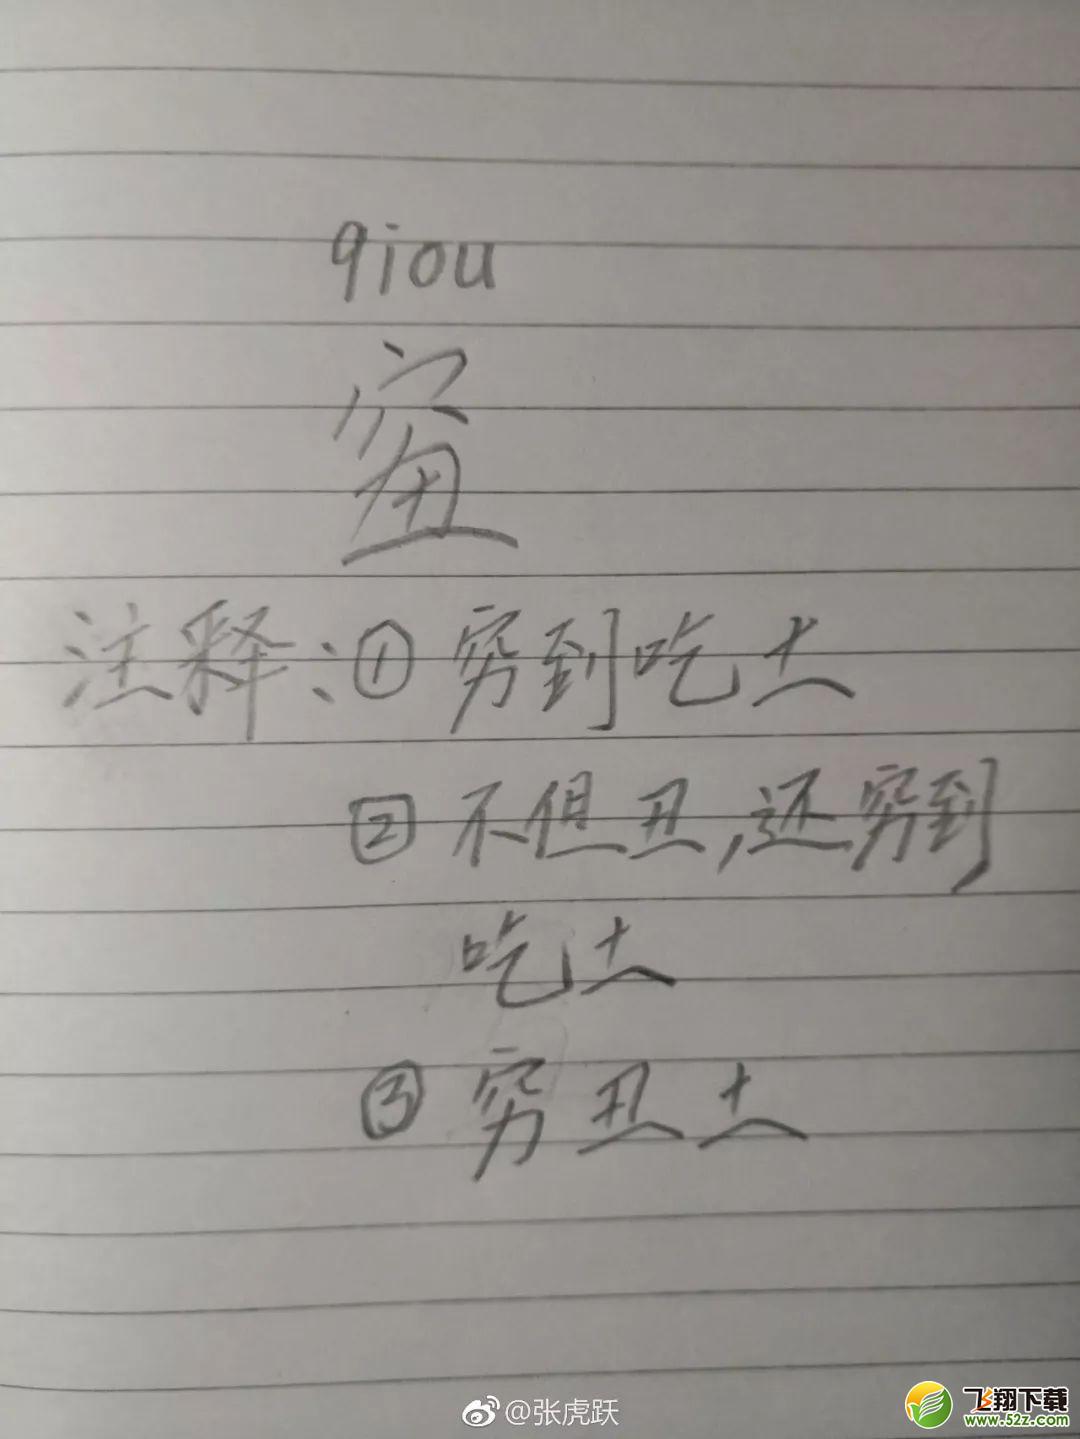 qiou
注释:①穷到吃土
②不但丑,还穷到
吃土
③穷丑土
@张虎跃
飞翔下载
www.52z.com